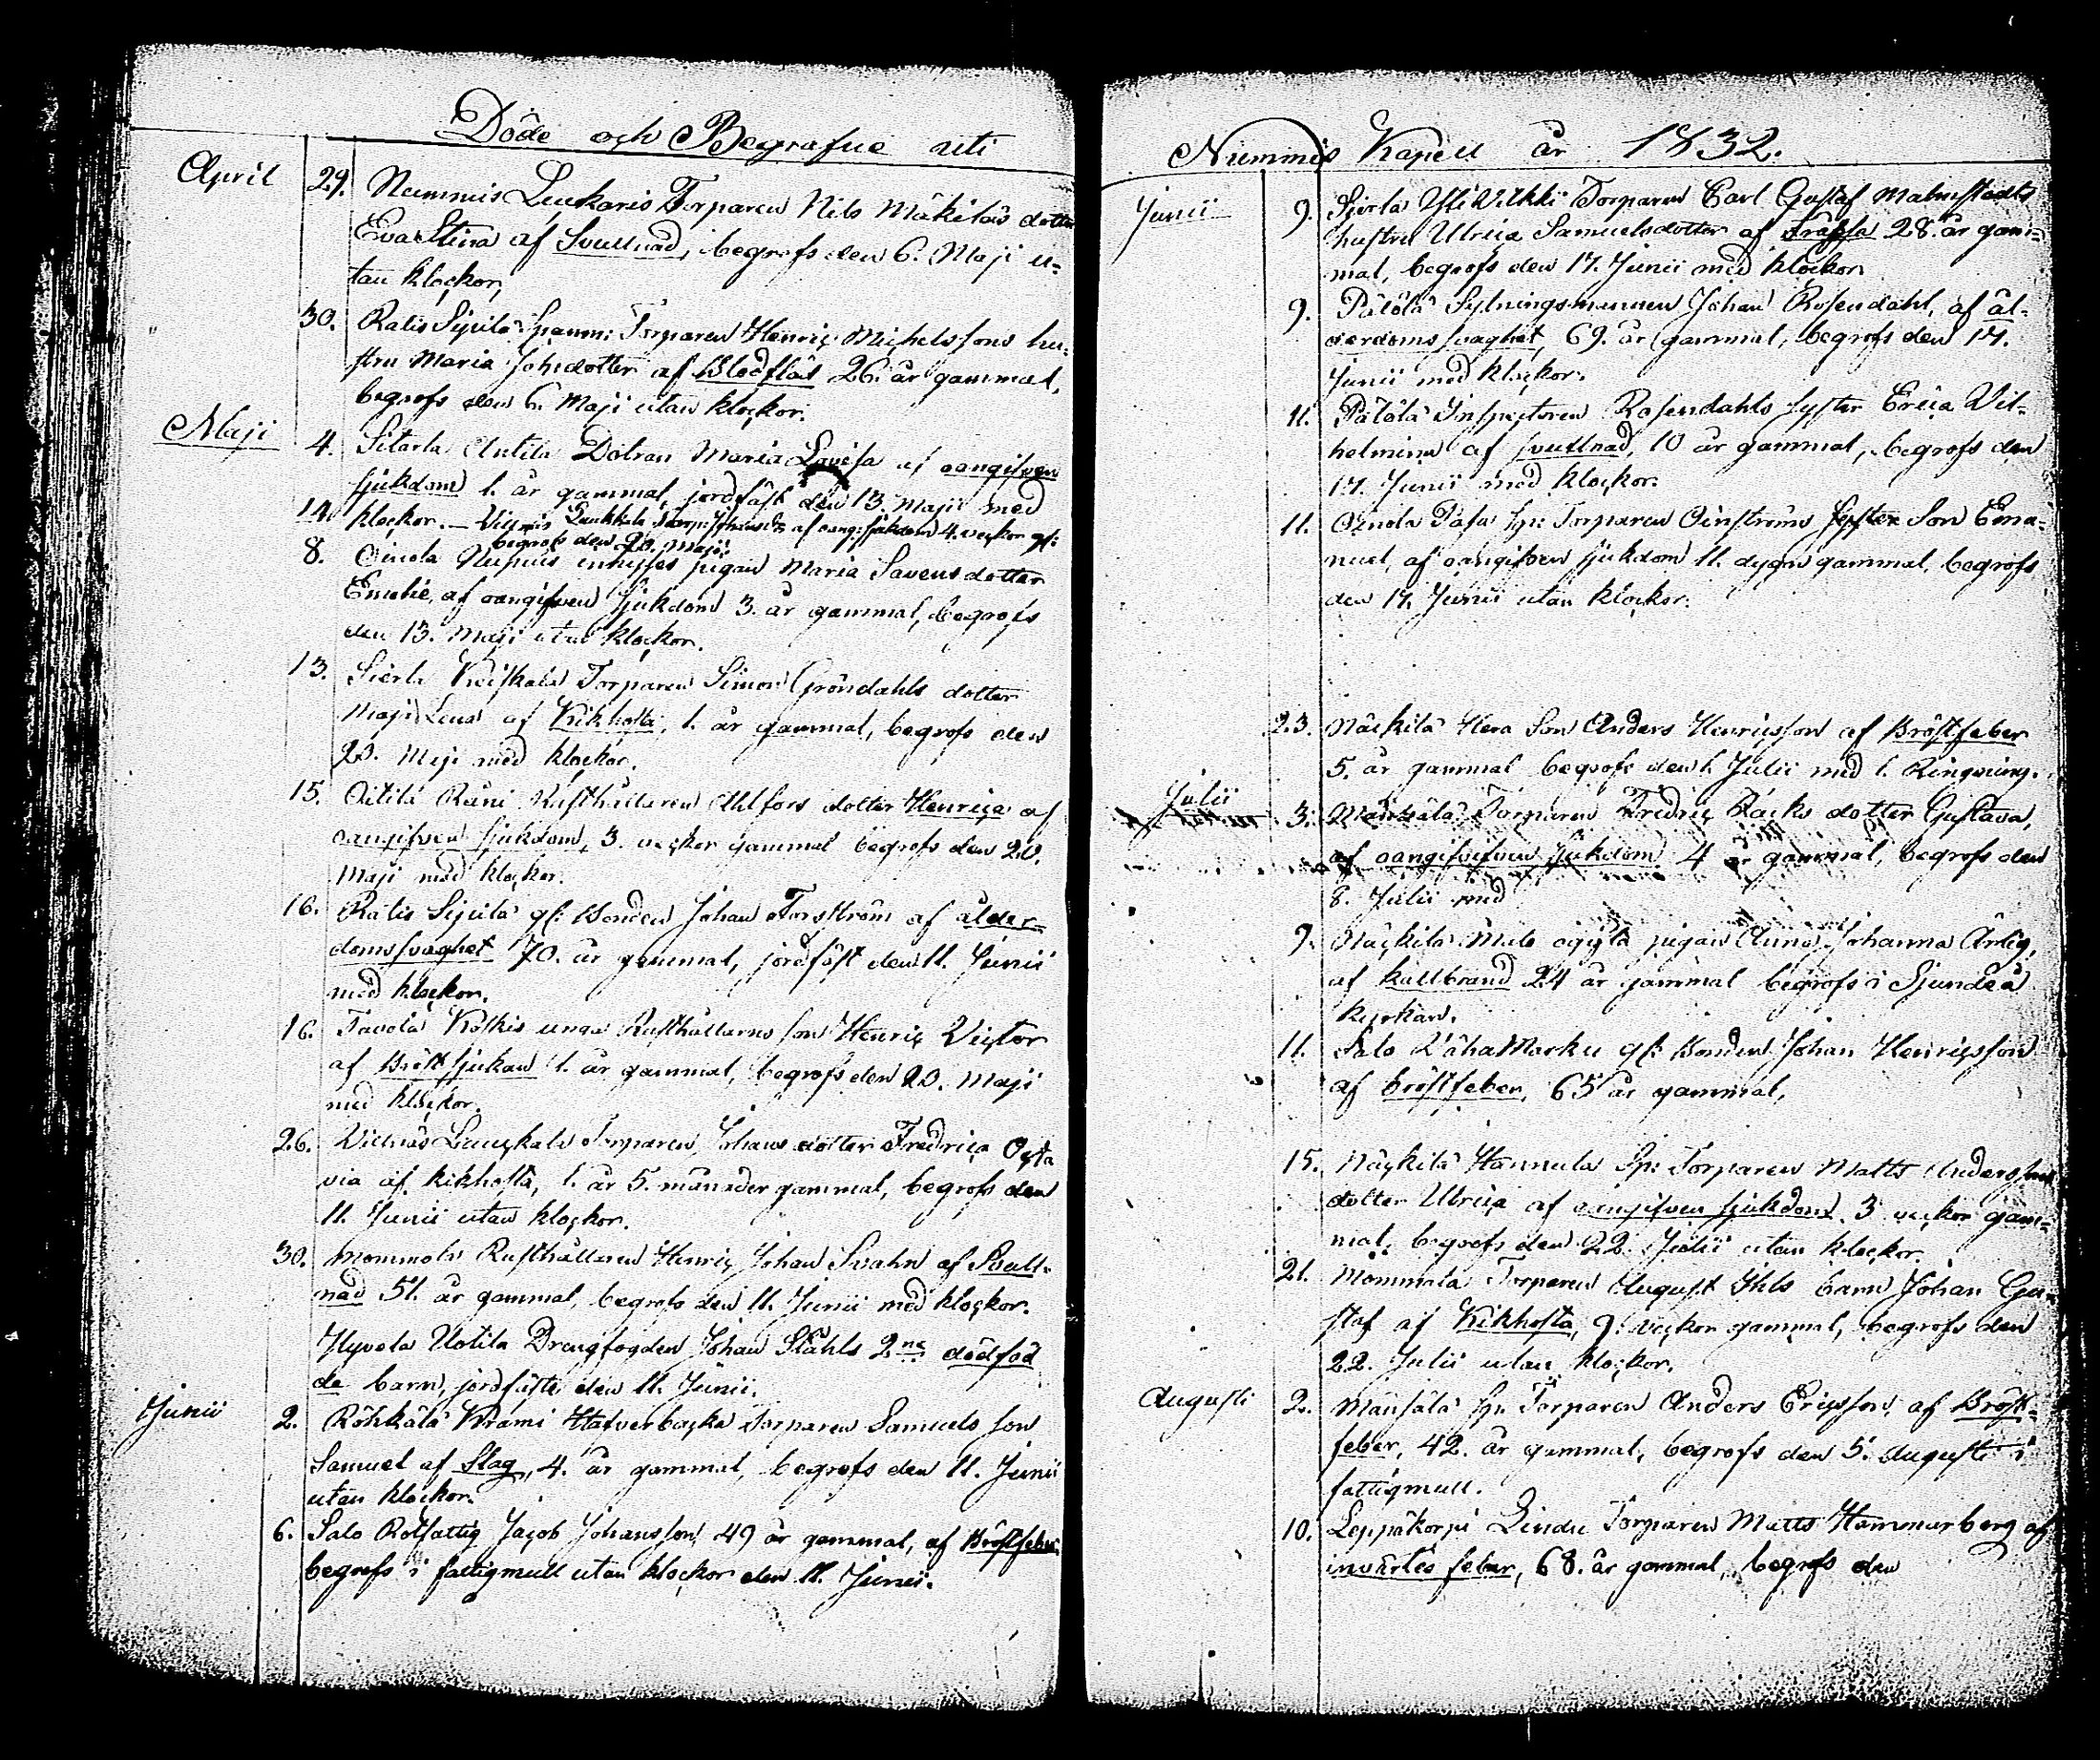 Döde och Begrafne uti
April 29. Nummis Leukaris Torparen Nils Mäkiläs dotter
Eva Stina af Svullnad, begrofs den 6. Maji u-
tan klockor,
" 30. Ratis Sipilä Spanm: Torparen Henric Michelssons hu-
stru Maria Johsdotter af Blodflåt 26. år gammal,
begrofs den 6. Maji utan klockor.
Maji 4. Sitarla Antila Dotran Maria Lovisa af oangifven
sjukdom 1. år gammal, jordfäst den 13. Maji med
klockor. —
14. Laukkala Torp: af oang: sjukdom 4. veckor gl:
begrofs den 20. Maji.
8. Oinola Nupuis inhyses pigan Maria Savensdotter
Emelie, af oangifven sjukdom 3. år gammal, begrofs
den 13. Maji utan klockor.
13. Sierla Torparen Simon Gröndahls dotter
Maja Lena af Kikhosta, 1. år gammal, begrofs den
20. Maji med klockor.
15. Oitilä Räni Rusthållaren Ahlfors dotter Henrica af
oangifven sjukdom, 3. veckor gammal begrofs den 20.
Maji med klockor.
16. Ratis Sipilä gl: Bonden Johan Forsström af ålder-
domssvaghet 70. år gammal, jordfäst den 11. Junii
med klockor.
16. Tavola Koskis unga Rusthållarns son Henric Victor
af Bröstsjukan 1. år gammal, begrofs den 20. Maji
med klockor.
26. Torparen Johans dotter Fredrica Octa
via af kikhosta, 1. år 5. månader gammal, begrofs den
11. Junii utan klockor.
30. Mommola Rusthållaren Henric Johan Svahn af Svull-
nad 51. år gammal, begrofs den 11. Junii med klockor.
Hyvola Uotila Drengfogden Johan Ståhls 2ne dödföd
de barn, jordfäste den 11. Junii.
Junii 2. Röhkälä Krami Hafverbacka Torparen Samuels son
Samuel af Slag, 4. år gammal, begrofs den 11. Junii
utan klockor.
6. Salo Rotfattig Jacob Johansson 49 år gammal, af Bröstfeber
begrofs i fattigmull utan klockor den 11. Junii.
Nummis Kapell år 1832.
Junii 9. Sierla Torparen Carl Gustaf Malmstedts
hustru Ulrica Samuelsdotter af Fråssa 28. år gam-
mal, begrofs den 17. Junii med klockor.
9. Pälölä Sytningsmannen Johan Rosendahl, af ål-
derdomssvaghet, 69. år gammal, begrofs den 17.
Junii med klockor.
11. Pälölä Inspectoren Rosendahls syster Erica Vil-
helmina af svullnad, 10 år gammal, begrofs den
17. Junii med klockor.
11. Oinola Pasa Sp: Torparen Oinströms Son Ema-
nuel, af oangifven sjukdom 11. dygn gammal, begrofs
den 17. Junii utan klockor.
23. Näckilä Hera Son Anders Henricsson af Bröstfeber
5. år gammal begrofs den 1. Julii med 1. Ringning.
Julii 3. Torparen Fredric Backs dotter Gustava,
af oangifvifven sjukdom 4 år gammal, begrofs den
8. Julii med
9. Näckilä ogifta pigan Anna Johanna
af kallbrand 24 år gammal begrofs i Sjundeå
kyrkan.
11. Salo VähäMarku gl: Bonden Johan Henricsson
af bröstfeber, 65 år gammal,
15. Näckilä Hannula Sp: Torparen Matts Anderssons
dotter Ulrica af oangifven sjukdom 3 veckor gam-
mal, begrofs den 22. Julii utan klockor.
21. Mommola Torparen August Ihls barn Johan Gu-
staf af Kikhosta, 9. veckor gammal, begrofs den
22. Julii utan klockor.
Augusti 2. Sp: Torparen Anders Ericsson, af Bröst-
feber, 42. år gammal, begrofs den 5. Augusti i
fattigmull.
10. Leppäkorpi Torparen Matts Hammarberg af
invärtes feber, 68. år gammal, begrofs den